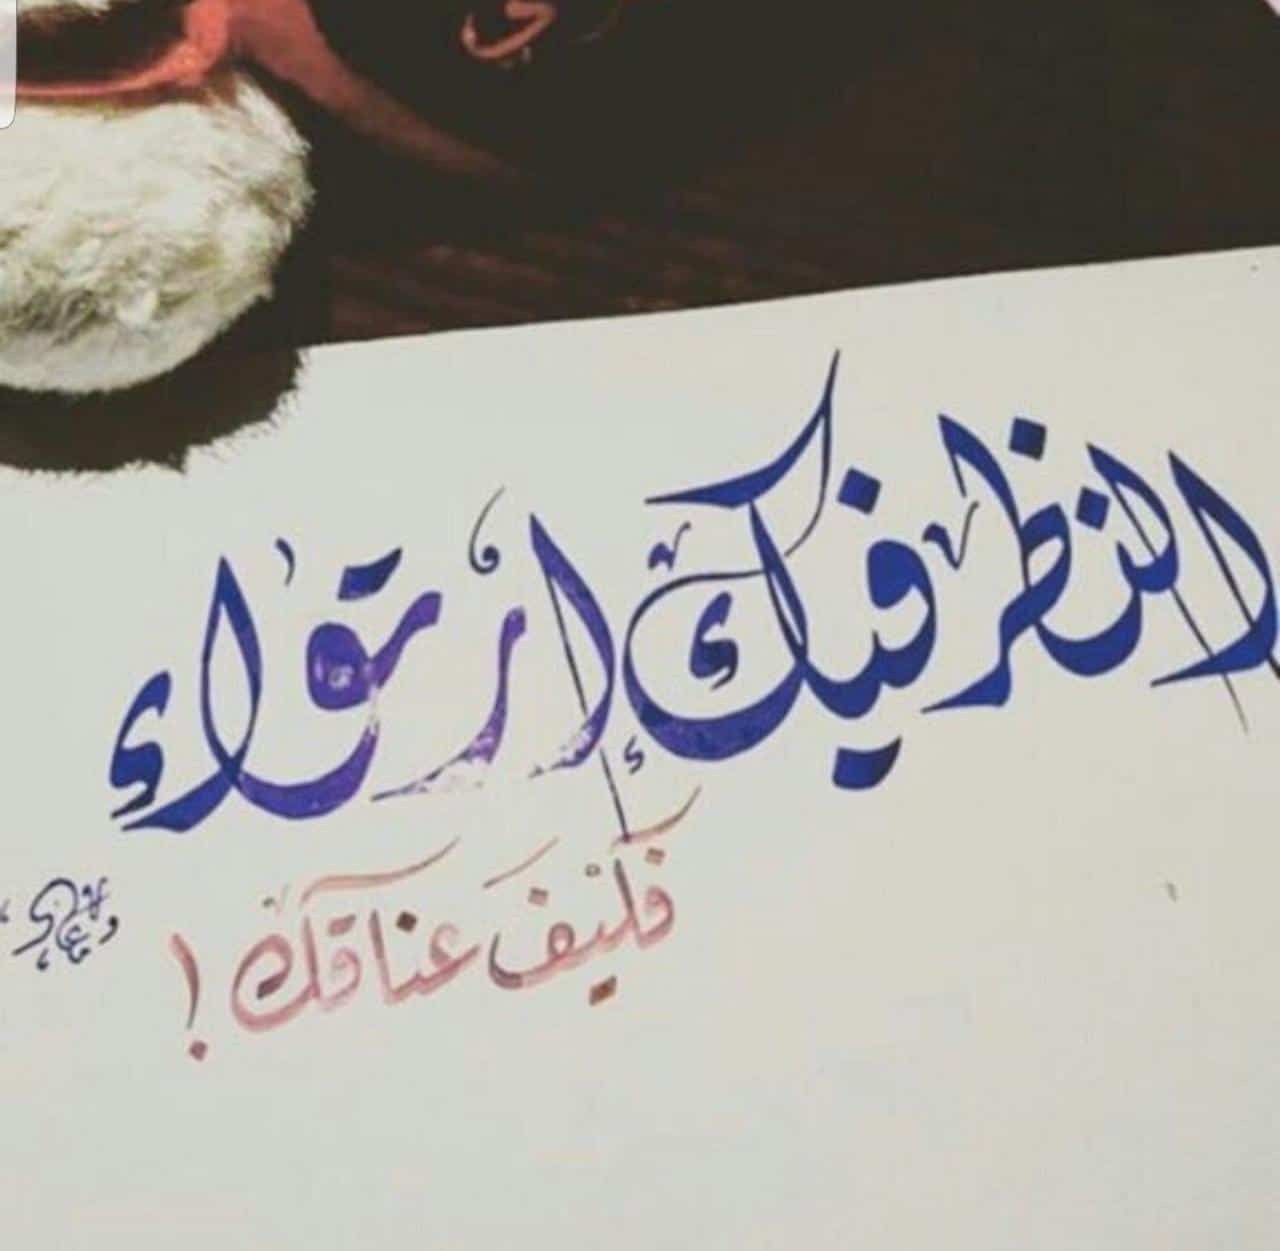 النظر فيك ارتواء
فكيف عناقك !